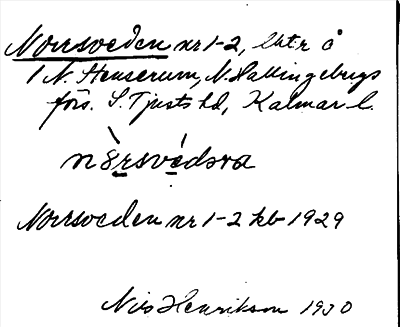 Norrsveden nr 1-2, lht:r å
1 N. Stenserum, N. Hallingebergs
förs. S. Tjusts hd, Kalmar l.
Norrsveden nr 1-2 jkb 1929
Nils Henrikson 1930